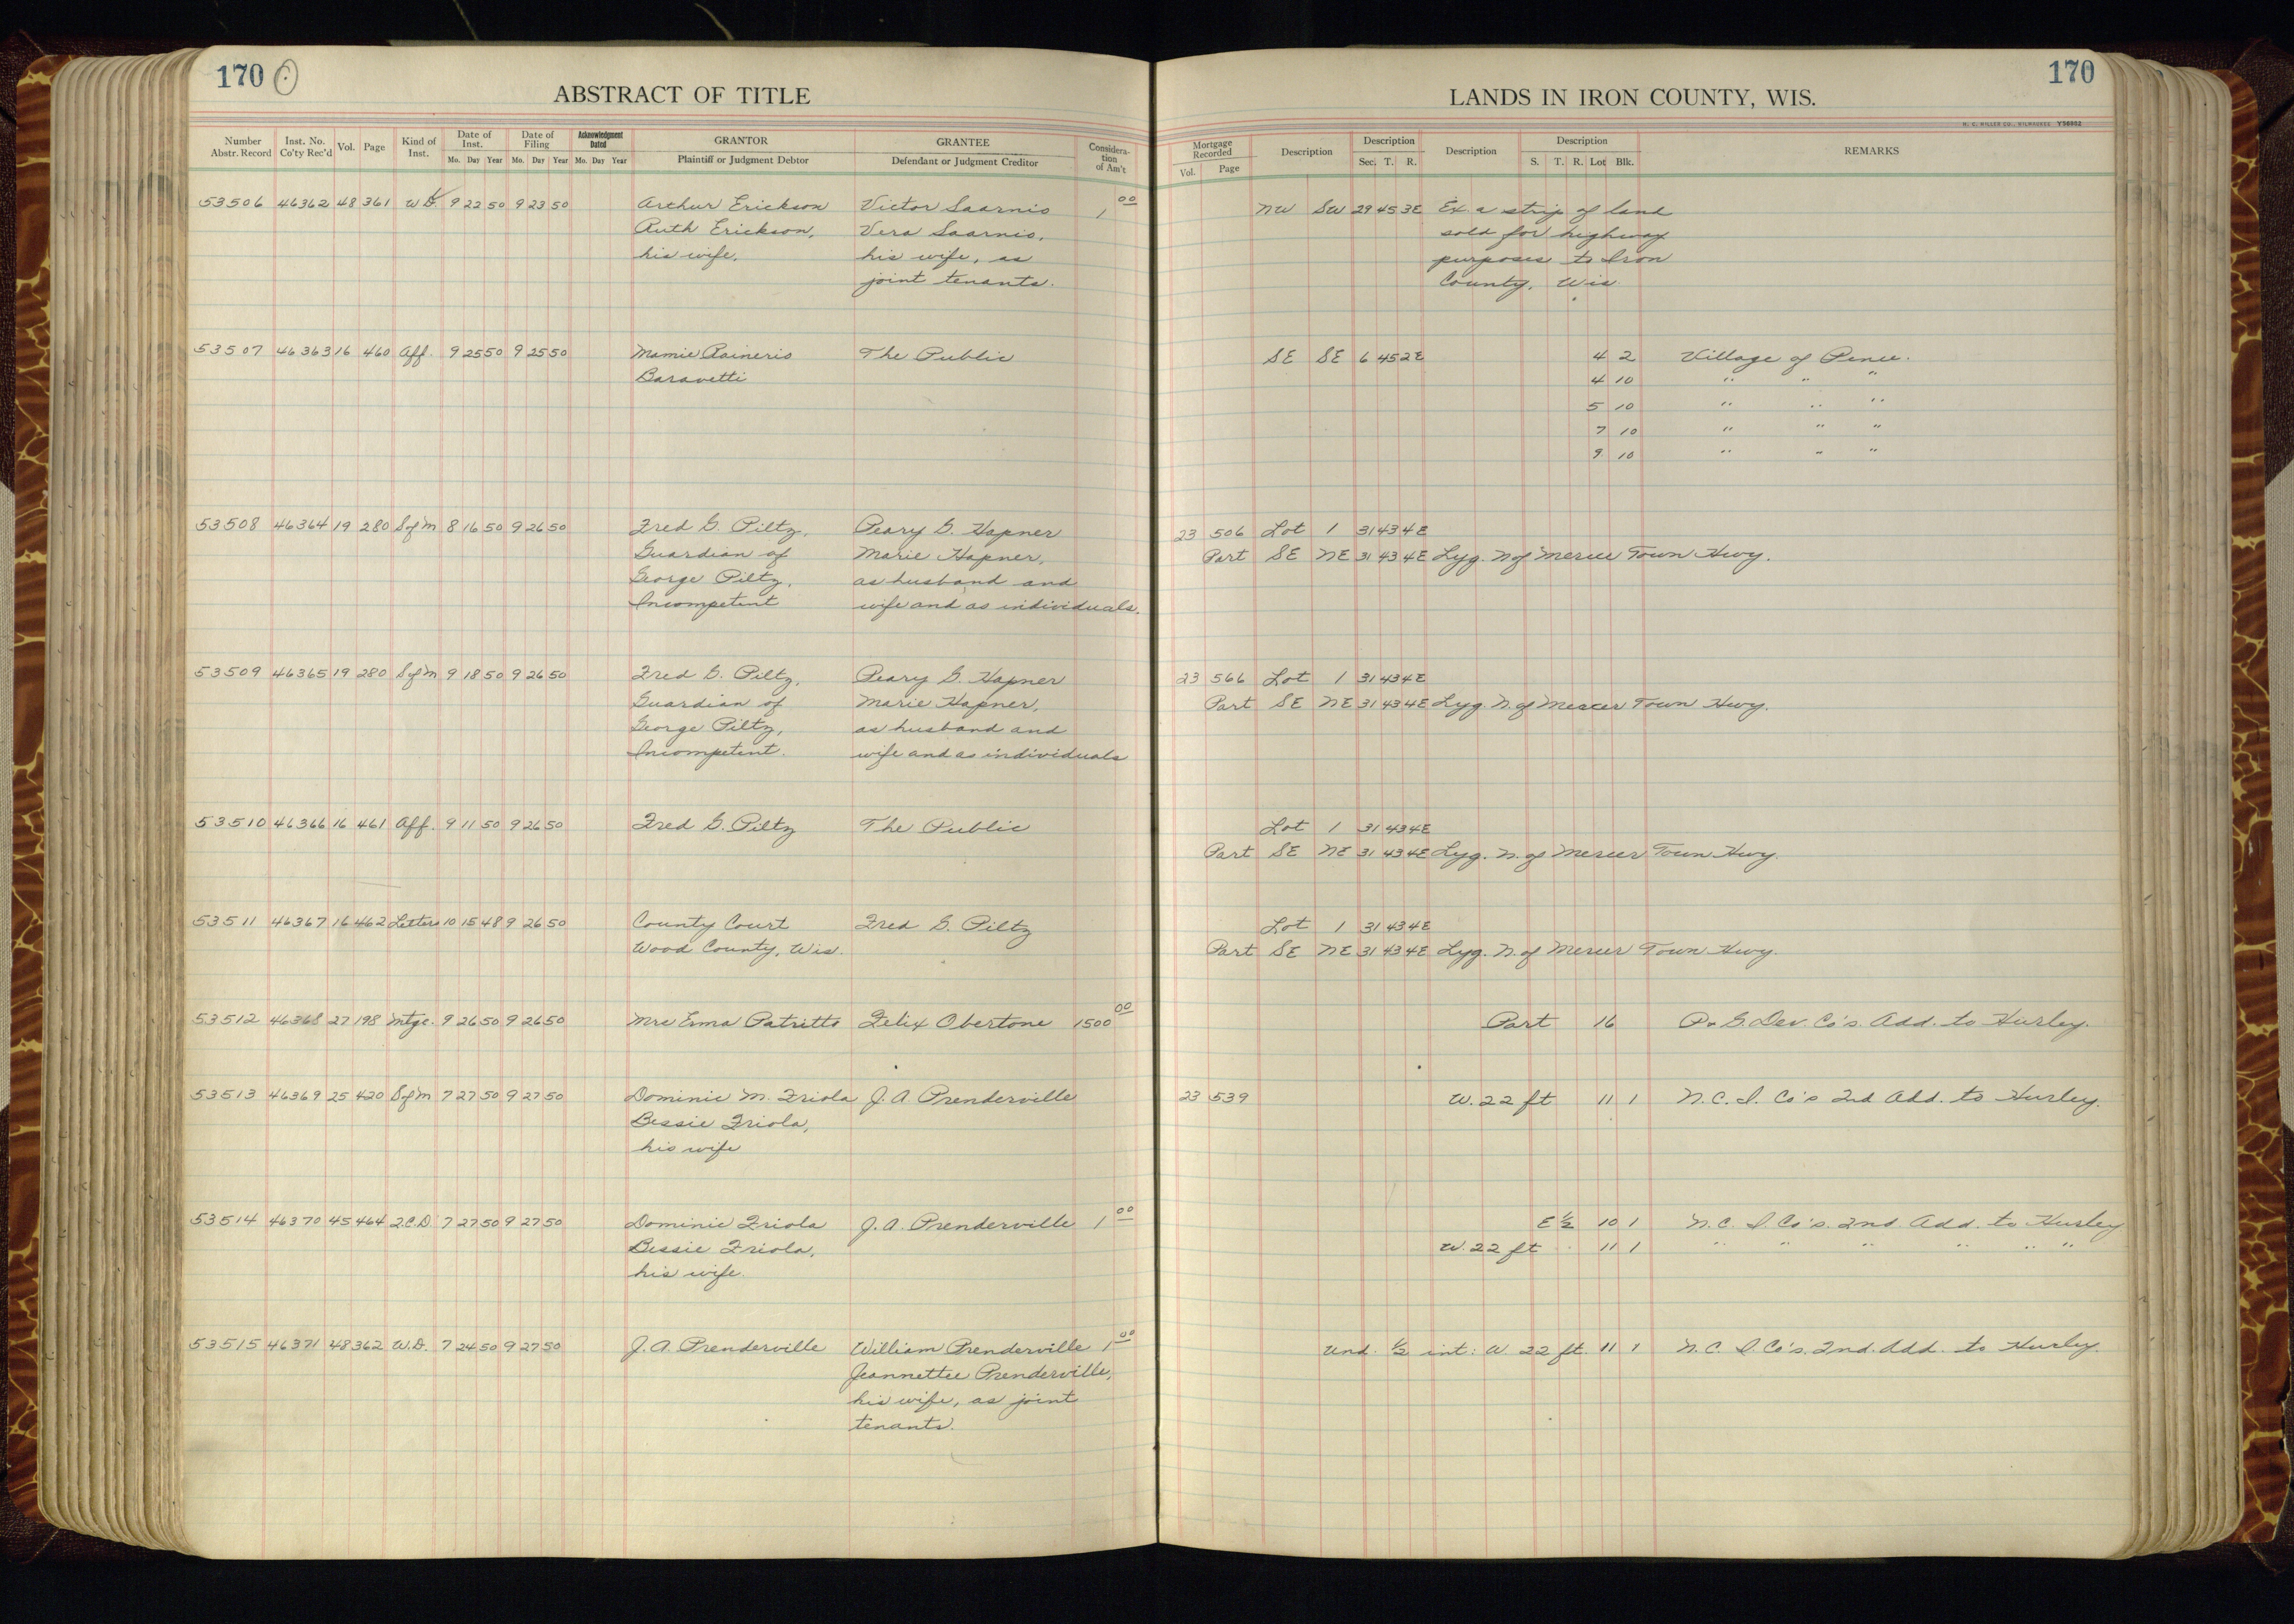 170
ABSTRACT OF TITLE
Number Abstr. Record | Inst. No. Co'ty Rec'd | Vol. | Page | Kind of Inst. | Date of Inst. Mo. Day Year | Date of Filing Mo. Day Year | Acknowledgment Dated Mo. Day Year | GRANTOR Plaintiff or Judgment Debtor | GRANTEE Defendant or Judgment Creditor | Consideration of Am't
53506 46362 48 361 W.D. 9 22 50 9 23 50 Arthur Erickson Victor Saarnio 1 00
Ruth Erickson, Vera Saarnio,
his wife, his wife, as
joint tenants.
53507 46363 16 460 Aff. 9 25 50 9 25 50 Mamie Raineris The Public
Baravetti
53508 46364 19 280 S of M 8 16 50 9 26 50 Fred G. Piltz, Peary G. Hapner
Guardian of Marie Hapner,
George Piltz, as husband and
Incompetent wife and as individuals.
53509 46365 19 280 S of M 9 18 50 9 26 50 Fred G. Piltz, Peary G. Hapner
Guardian of Marie Hapner,
George Piltz, as husband and
Incompetent. wife and as individuals
53510 46366 16 461 Aff. 9 11 50 9 26 50 Fred G. Piltz The Public
53511 46367 16 462 Letters 10 15 48 9 26 50 County Court Fred G. Piltz
Wood County, Wis.
53512 46368 27 198 Mtge. 9 26 50 9 26 50 Mrs Erma Patritto Felix Obertone 1500 00
53513 46369 25 420 S of M 7 27 50 9 27 50 Dominic M. Friola J. A. Prenderville
Bessie Friola,
his wife
53514 46370 45 464 2.C.D. 7 27 50 9 27 50 Dominic Friola J. A. Prenderville 1 00
Bessie Friola,
his wife.
53515 46371 48 362 W.D. 7 24 50 9 27 50 J. A. Prenderville William Prenderville 1 00
Jeannettee Prenderville,
his wife, as joint
tenants.
170
LANDS IN IRON COUNTY, WIS.
H. C. MILLER CO., MILWAUKEE Y56982
Mortgage Recorded Vol. Page | Description | Description Sec. T. R. | Description | Description S. T. R. Lot Blk. | REMARKS
NW SW 29 45 3E Ex. a strip of land
sold for highway
purposes to Iron
County, Wis.
SE SE 6 45 2E 4 2 Village of Pence.
4 10 " " "
5 10 " " "
7 10 " " "
9 10 " " "
23 506 Lot 1 31 43 4E
Part SE NE 31 43 4E Lyg. N of Mercer Town Hwy.
23 566 Lot 1 31 43 4E
Part SE NE 31 43 4E Lyg. N. of Mercer Town Hwy.
Lot 1 31 43 4E
Part SE NE 31 43 4E Lyg. N. of Mercer Town Hwy.
Lot 1 31 43 4E
Part SE NE 31 43 4E Lyg. N. of Mercer Town Hwy.
Part 16 P. & G. Dev. Co's. Add. to Hurley.
23 539 W. 22 ft 11 1 N. C. I. Co's 2nd Add. to Hurley.
E 1/2 10 1 N. C. I. Co's. 2nd. Add. to Hurley
W. 22 ft 11 1 " " " " " "
Und. 1/2 int: W 22 ft. 11 1 N. C. I. Co's. 2nd. Add. to Hurley.